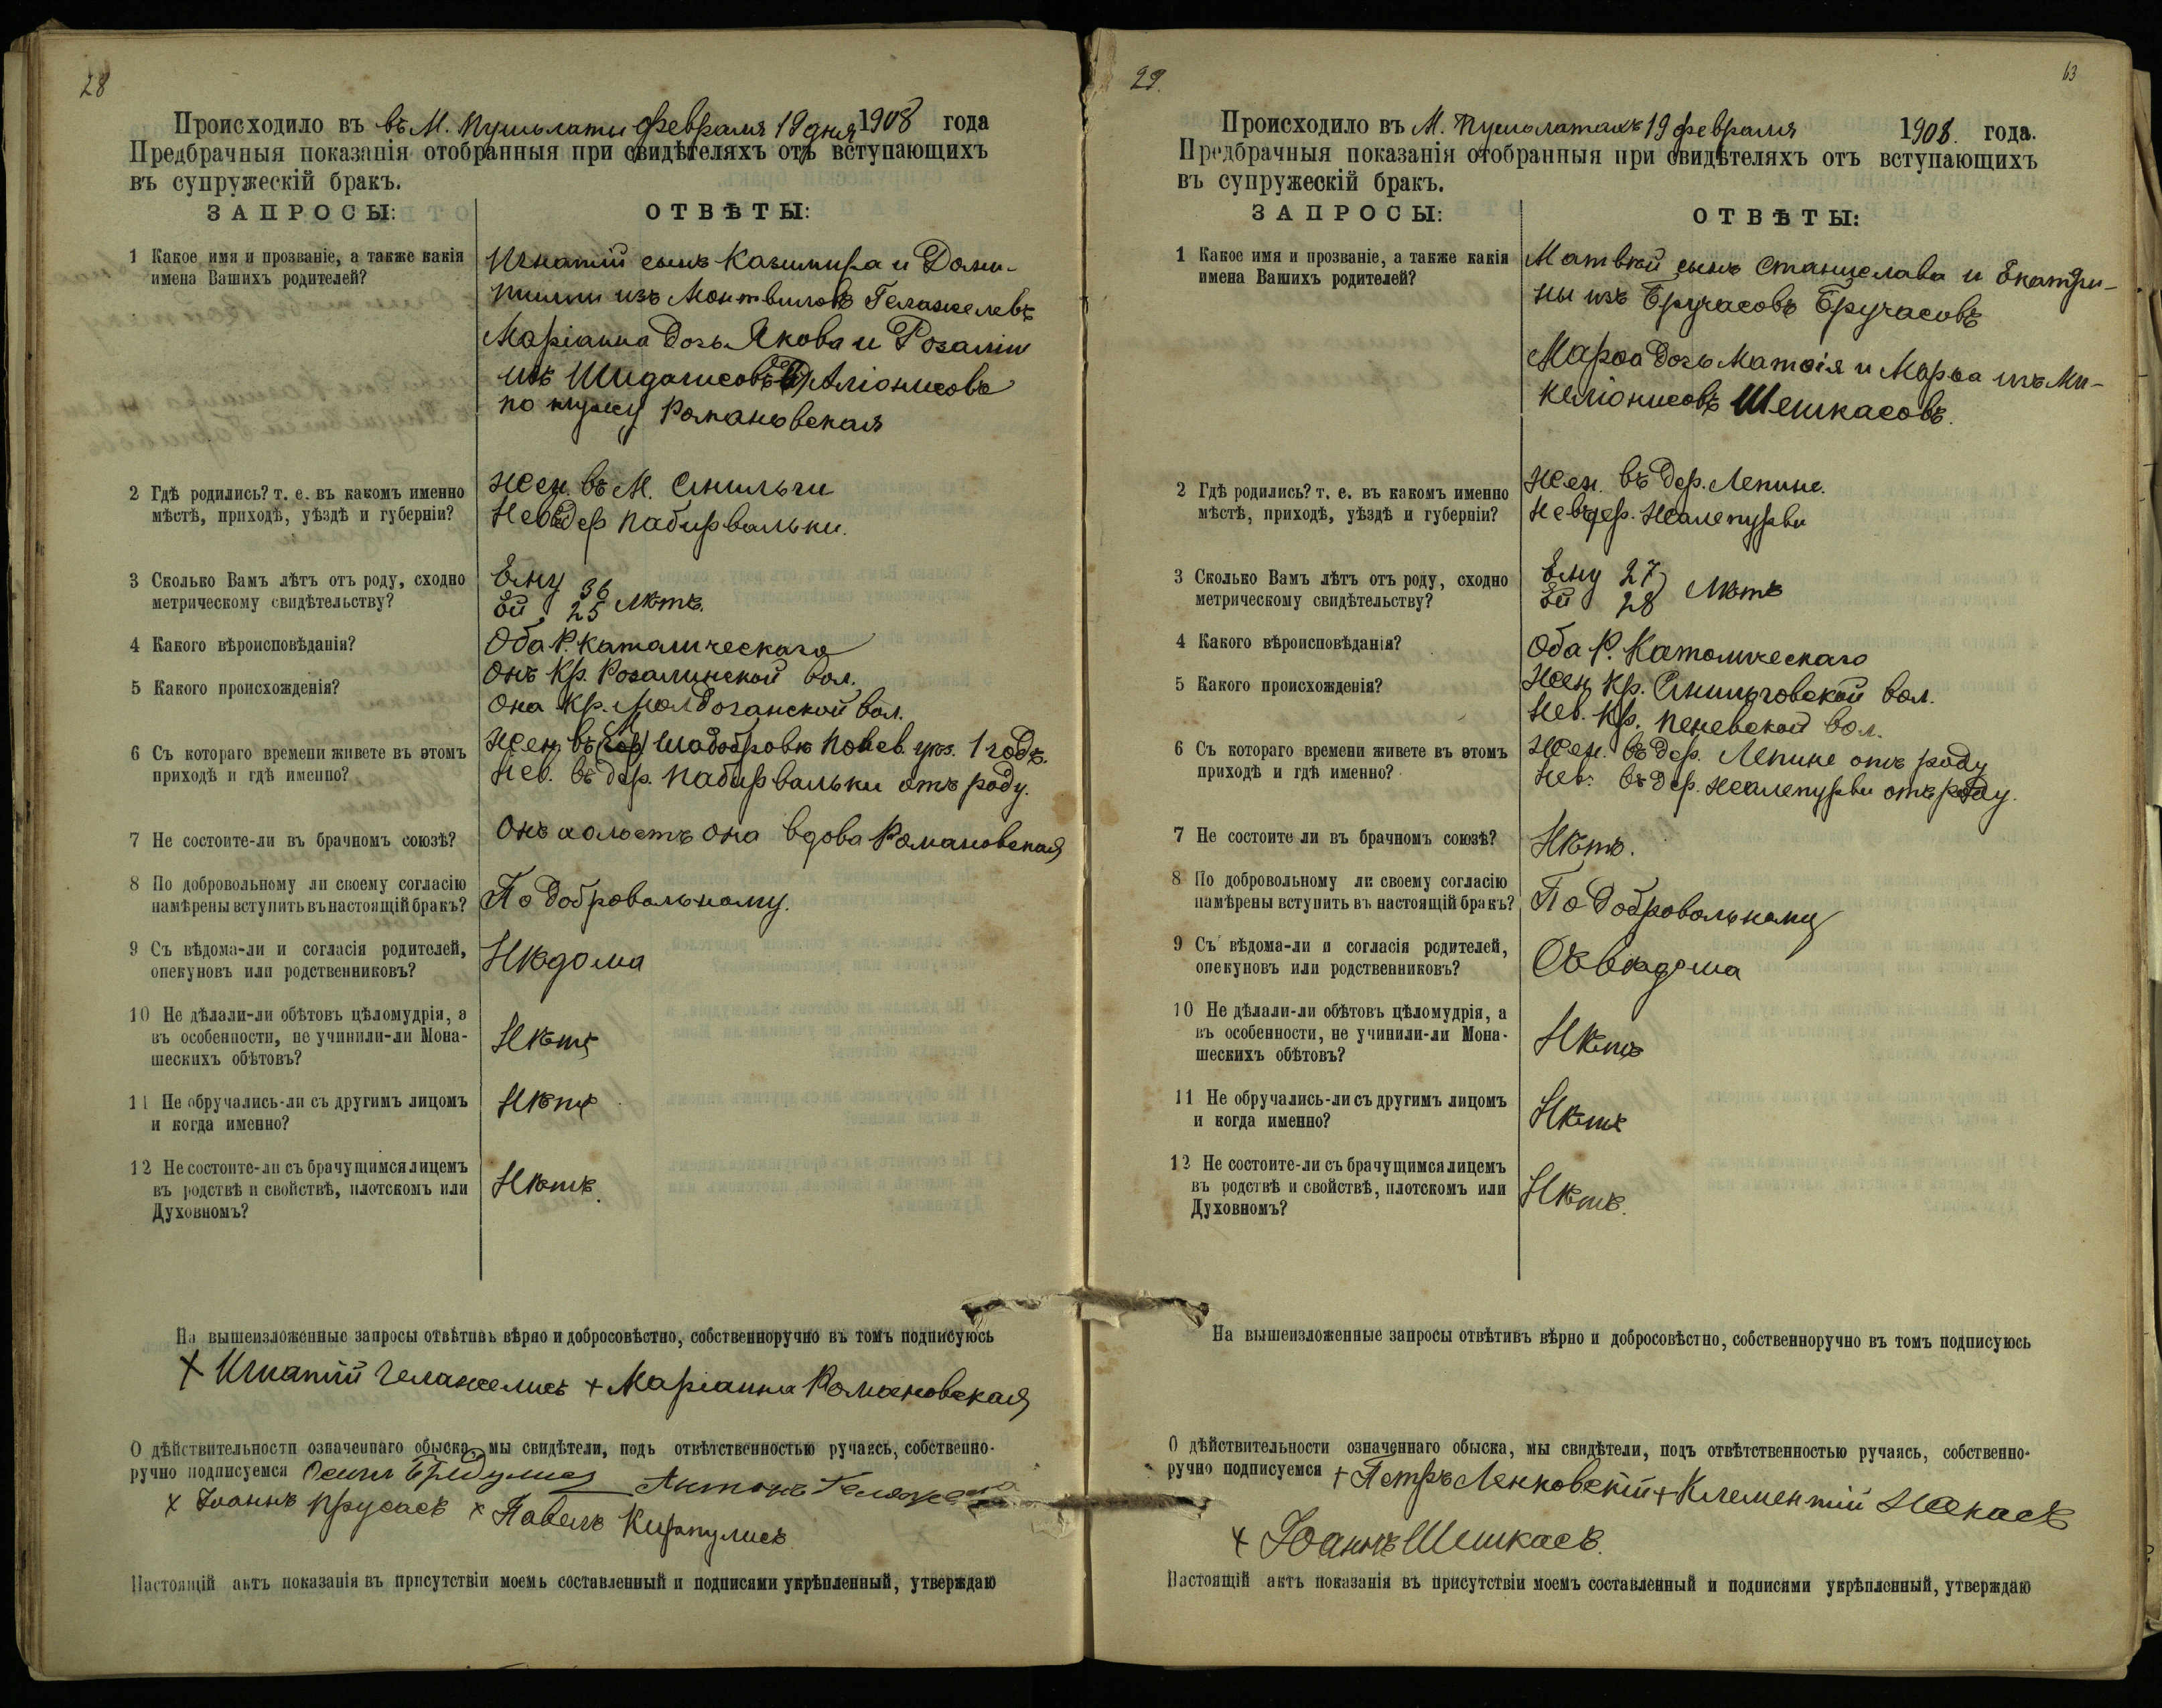 28
Происходило въ въ М. Пушолати Февраля 19 дня 1908 года
Предбрачныя показанія отобранныя при свидѣтеляхъ отъ вступающихъ
въ супружескій бракъ.
ЗАПРОСЫ: ОТВѢТЫ:
1 Какое имя и прозваніе, а также какія
имена Вашихъ родителей?
Игнатій сынъ Казимира и Доми-
изъ Монтвиловъ Гелажелевъ
Маріанна дочь Якова и Розаліи
изъ Шидагисовъ Аліонисовъ
по мужу Романовская
2 Гдѣ родились? т. е. въ какомъ именно
мѣстѣ, приходѣ, уѣздѣ и губерніи?
Жен. въ М. Смильги
Нев. дер Пабирвальки.
3 Сколько Вамъ лѣтъ отъ роду, сходно
метрическому свидѣтельству?
Ему 36
Ей 25 Лѣтъ.
4 Какого вѣроисповѣданія?
Оба Р. Католическаго
5 Какого происхожденія?
Онъ Кр. Розалинской вол.
Она Кр. вол.
6 Съ котораго времени живете въ этомъ
приходѣ и гдѣ именно?
Жен. въ Понев. уѣз. 1 годъ.
Нев. въ дер. Пабирвальки отъ роду.
7 Не состоите-ли въ брачномъ союзѣ?
Онъ холостъ она вдова Романовская
8 По добровольному ли своему согласію
намѣрены вступить въ настоящій бракъ?
По добровольному.
9 Съ вѣдома-ли и согласія родителей,
опекуновъ или родственниковъ?
10 Не дѣлали-ли обѣтовъ цѣломудрія, а
въ особенности, не учинили-ли Мона-
шескихъ обѣтовъ?
Нѣтъ
11 Не обручались-ли съ другимъ лицомъ
и когда именно?
Нѣтъ
12 Не состоите-ли съ брачущимся лицемъ
въ родствѣ и свойствѣ, плотскомъ или
Духовномъ?
Нѣтъ.
На вышеизложенные запросы отвѣтивъ вѣрно и добросовѣстно, собственноручно въ томъ подписуюсь
+ Игнатій Гелажелисъ + Маріанна Романовская
О дѣйствительности означеннаго обыска, мы свидѣтели, подъ отвѣтственностью ручаясь, собственно-
ручно подписуемся Осипъ Антонъ
х Іоаннъ Прусасъ х Павелъ Киркулисъ
Настоящій актъ показанія въ присутствіи моемъ составленный и подписями укрѣпленный, утверждаю
29. 63
Происходило въ М. Пушолатахъ 19 февраля 1908. года.
Предбрачныя показанія отобранныя при свидѣтеляхъ отъ вступающихъ
въ супружескій бракъ.
ЗАПРОСЫ: ОТВѢТЫ:
1 Какое имя и прозваніе, а также какія
имена Вашихъ родителей?
Матвѣй сынъ Станислава и Екатри-
ны изъ Бручасовъ Бручасовъ
Марѳа дочь Матѳія и Марѳа изъ Ми-
келіонисовъ Шешкасовъ.
2 Гдѣ родились? т. е. въ какомъ именно
мѣстѣ, приходѣ, уѣздѣ и губерніи?
Жен. въ дер. Лепине.
Нев. дер. Жалепурви
3 Сколько Вамъ лѣтъ отъ роду, сходно
метрическому свидѣтельству?
Ему 27
Ей 28 Лѣтъ
4 Какого вѣроисповѣданія?
Оба Р. Католическаго
5 Какого происхожденія?
Жен. Кр. Смильговской вол.
Нев. Кр. Поневской вол.
6 Съ котораго времени живете въ этомъ
приходѣ и гдѣ именно?
Жен. въ дер. Лепине отъ роду
Нев. въ дер. Жалепурви отъ роду.
7 Не состоите ли въ брачномъ союзѣ?
Нѣтъ.
8 По добровольному ли своему согласію
намѣрены вступить въ настоящій бракъ?
По добровольному
9 Съ вѣдома-ли и согласія родителей,
опекуновъ или родственниковъ?
Съ вѣдома
10 Не дѣлали-ли обѣтовъ цѣломудрія, а
въ особенности, не учинили-ли Мона-
шескихъ обѣтовъ?
Нѣтъ
11 Не обручались-ли съ другимъ лицомъ
и когда именно?
Нѣтъ
12 Не состоите-ли съ брачущимся лицемъ
въ родствѣ и свойствѣ, плотскомъ или
Духовномъ?
Нѣтъ.
На вышеизложенные запросы отвѣтивъ вѣрно и добросовѣстно, собственноручно въ томъ подписуюсь
О дѣйствительности означеннаго обыска, мы свидѣтели, подъ отвѣтственностью ручаясь, собственно-
ручно подписуемся + Петръ Ленковскій + Клементій
х Іоаннъ Шешкасъ.
Настоящій актъ показанія въ присутствіи моемъ составленный и подписями укрѣпленный, утверждаю